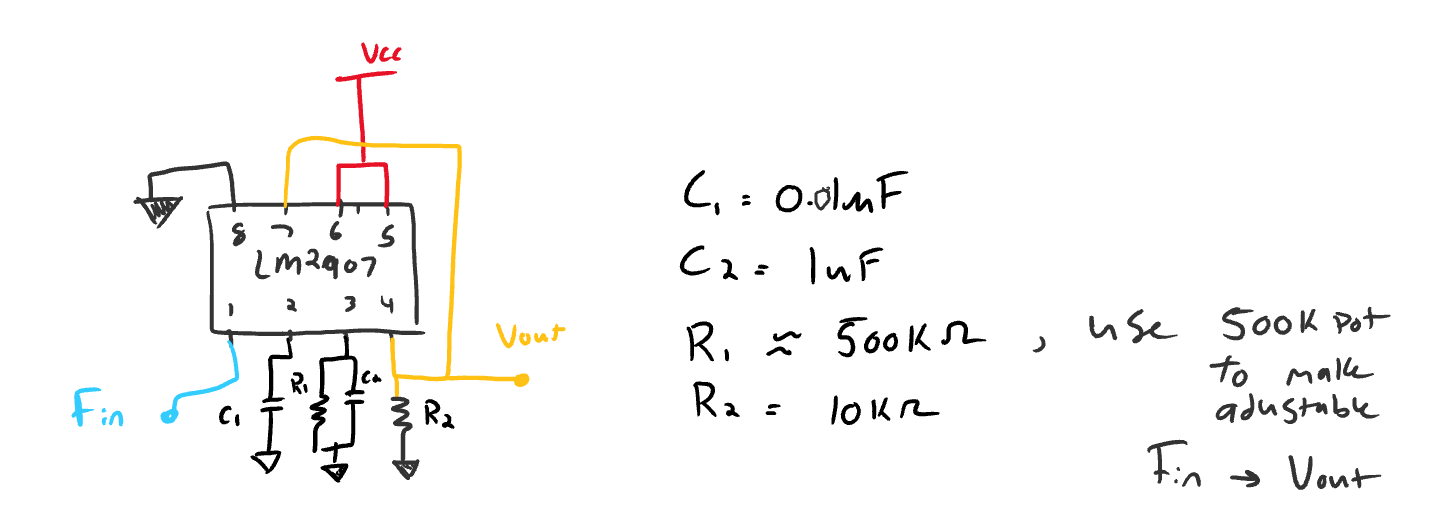 Vcc
8 7 6 5
LM2907
1 2 3 4
Vout
Fin
C1
R1
C2
R2
C1 = 0.01uF
C2 = 1uF
R1 ≈ 500KΩ, use 500K pot
to make
adustable
R2 = 10KΩ
Fin → Vout